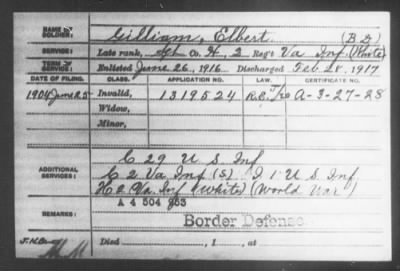 NAME OF SOLDIER: Gilliam, Elbert. (B D)
SERVICE: Late rank, Co. H, 2 Reg't Va Inf (White)
TERM OF SERVICE: Enlisted June 26, 1916 Discharged Feb 28, 1917
DATE OF FILING. CLASS. APPLICATION NO. LAW. CERTIFICATE NO.
1904 June 25 Invalid, 1319524 A-3-27-28
Widow,
Minor,
C 29 U S Inf
ADDITIONAL SERVICES: C 2 Va Inf (S) I 1 U S Inf
H 2 Va Inf (White) (World War)
A 4 504 953
REMARKS: Border Defense
Died , 1 , at